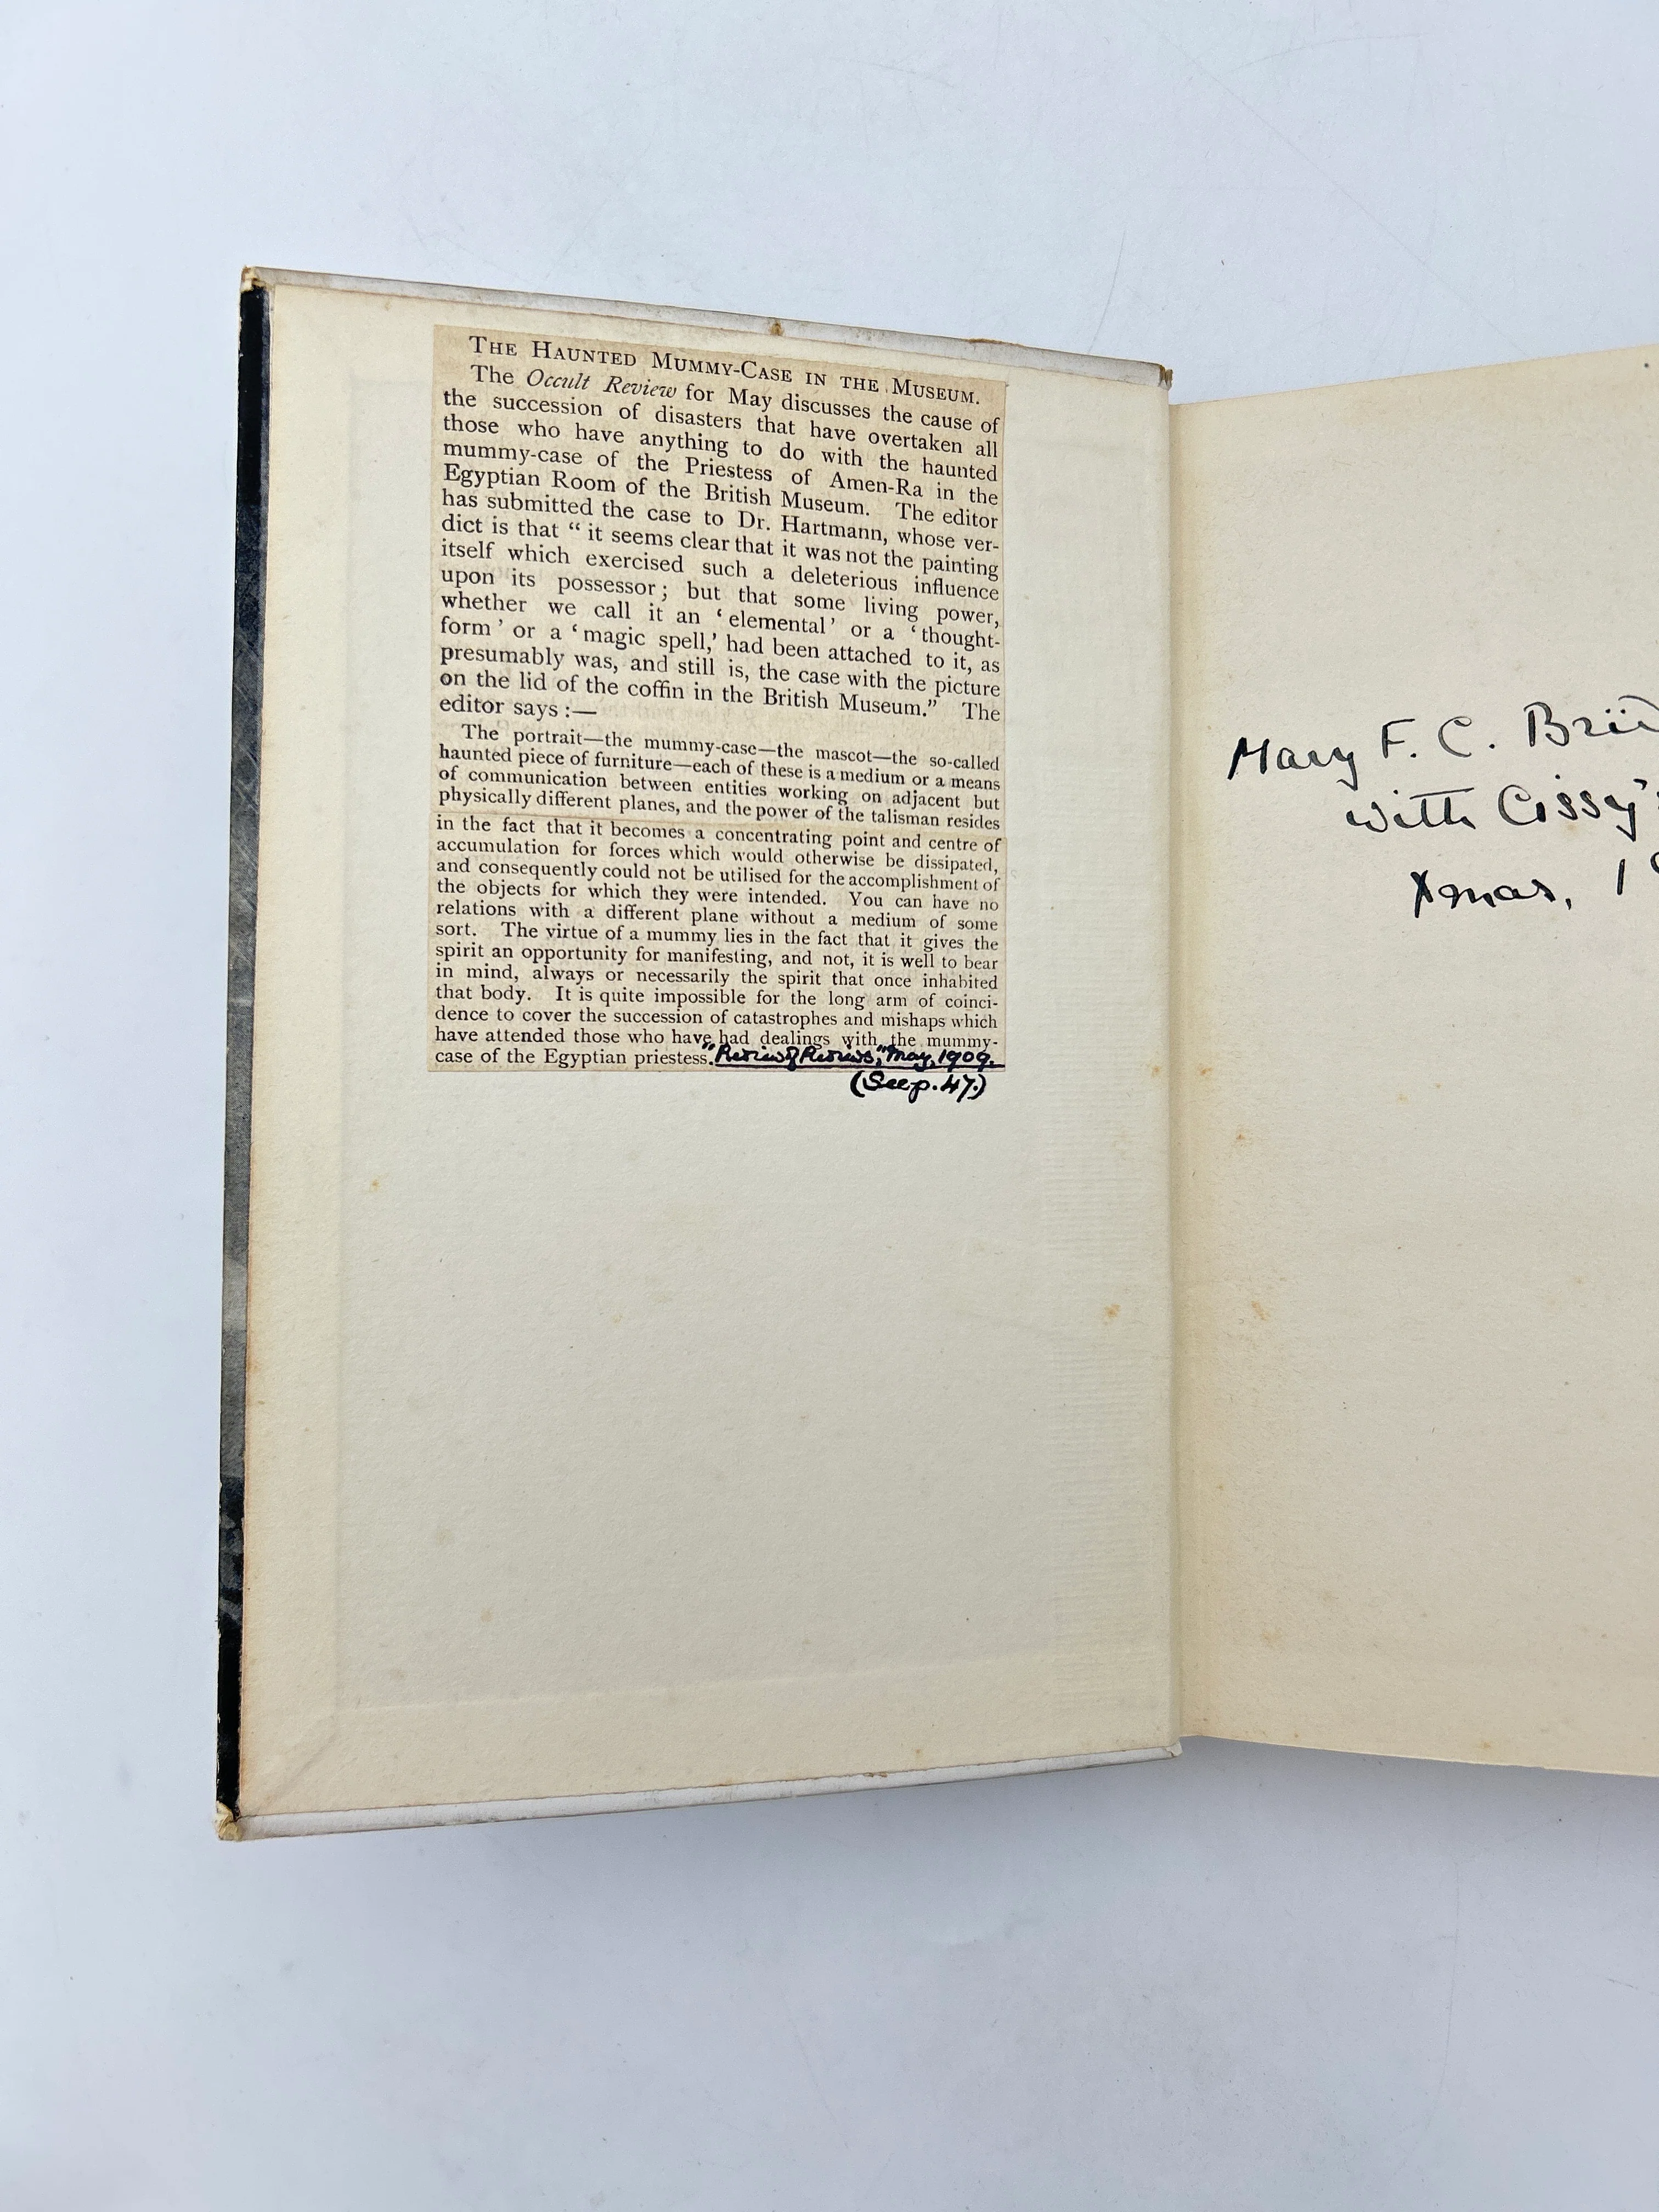 THE HAUNTED MUMMY-CASE IN THE MUSEUM.
The Occult Review for May discusses the cause of
the succession of disasters that have overtaken all
those who have anything to do with the haunted
mummy-case of the Priestess of Amen-Ra in the
Egyptian Room of the British Museum. The editor
has submitted the case to Dr. Hartmann, whose ver-
dict is that “ it seems clear that it was not the painting
itself which exercised such a deleterious influence
upon its possessor ; but that some living power,
whether we call it an ‘ elemental ’ or a ‘ thought-
form ’ or a ‘ magic spell,’ had been attached to it, as
presumably was, and still is, the case with the picture
on the lid of the coffin in the British Museum.” The
editor says :—
The portrait—the mummy-case—the mascot—the so-called
haunted piece of furniture—each of these is a medium or a means
of communication between entities working on adjacent but
physically different planes, and the power of the talisman resides
in the fact that it becomes a concentrating point and centre of
accumulation for forces which would otherwise be dissipated,
and consequently could not be utilised for the accomplishment of
the objects for which they were intended. You can have no
relations with a different plane without a medium of some
sort. The virtue of a mummy lies in the fact that it gives the
spirit an opportunity for manifesting, and not, it is well to bear
in mind, always or necessarily the spirit that once inhabited
that body. It is quite impossible for the long arm of coinci-
dence to cover the succession of catastrophes and mishaps which
have attended those who have had dealings with the mummy-
case of the Egyptian priestess. "Review of Reviews," May, 1909.
(See p. 47.)
Mary F. C.
with Cissy's
Xmas, 1